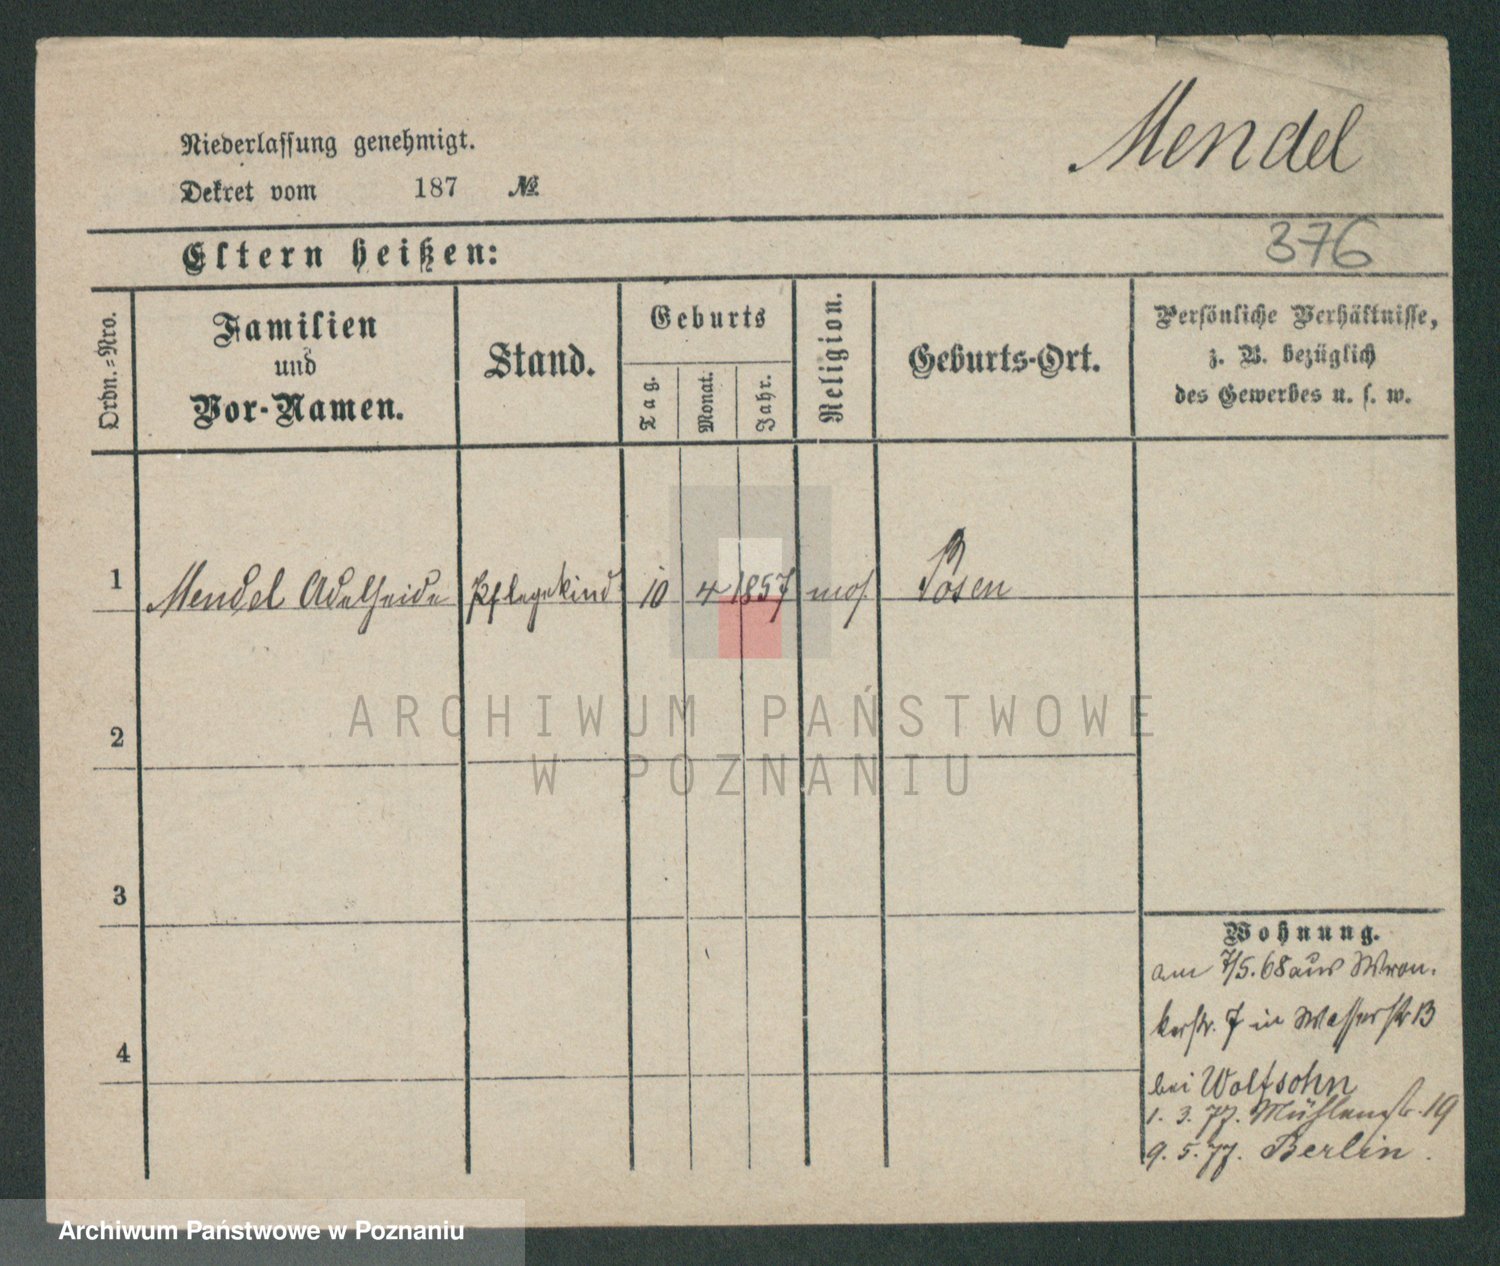 Mendel
Niederlassung genehmigt.
Dekret vom 187 №
376
Eltern heißen:
Ordn.=Nro.
Familien
und
Vor-Namen.
Stand.
Geburts
Tag.
Monat.
Jahr.
Religion.
Geburts-Ort.
Persönliche Verhältnisse,
z. B. bezüglich
des Gewerbes u. s. w.
1 Mendel Adelheide Pflegekind 10 4 1857 mos. Posen
ARCHIWUM PAŃSTWOWE
W POZNANIU
2
3
4
Wohnung.
am 7/5. 68 aus Wron.
kerstr. 7 in Wasserstr 13
bei Wolfsohn
1. 3. 77. Mühlenstr. 19
9. 5. 77. Berlin.
Archiwum Państwowe w Poznaniu